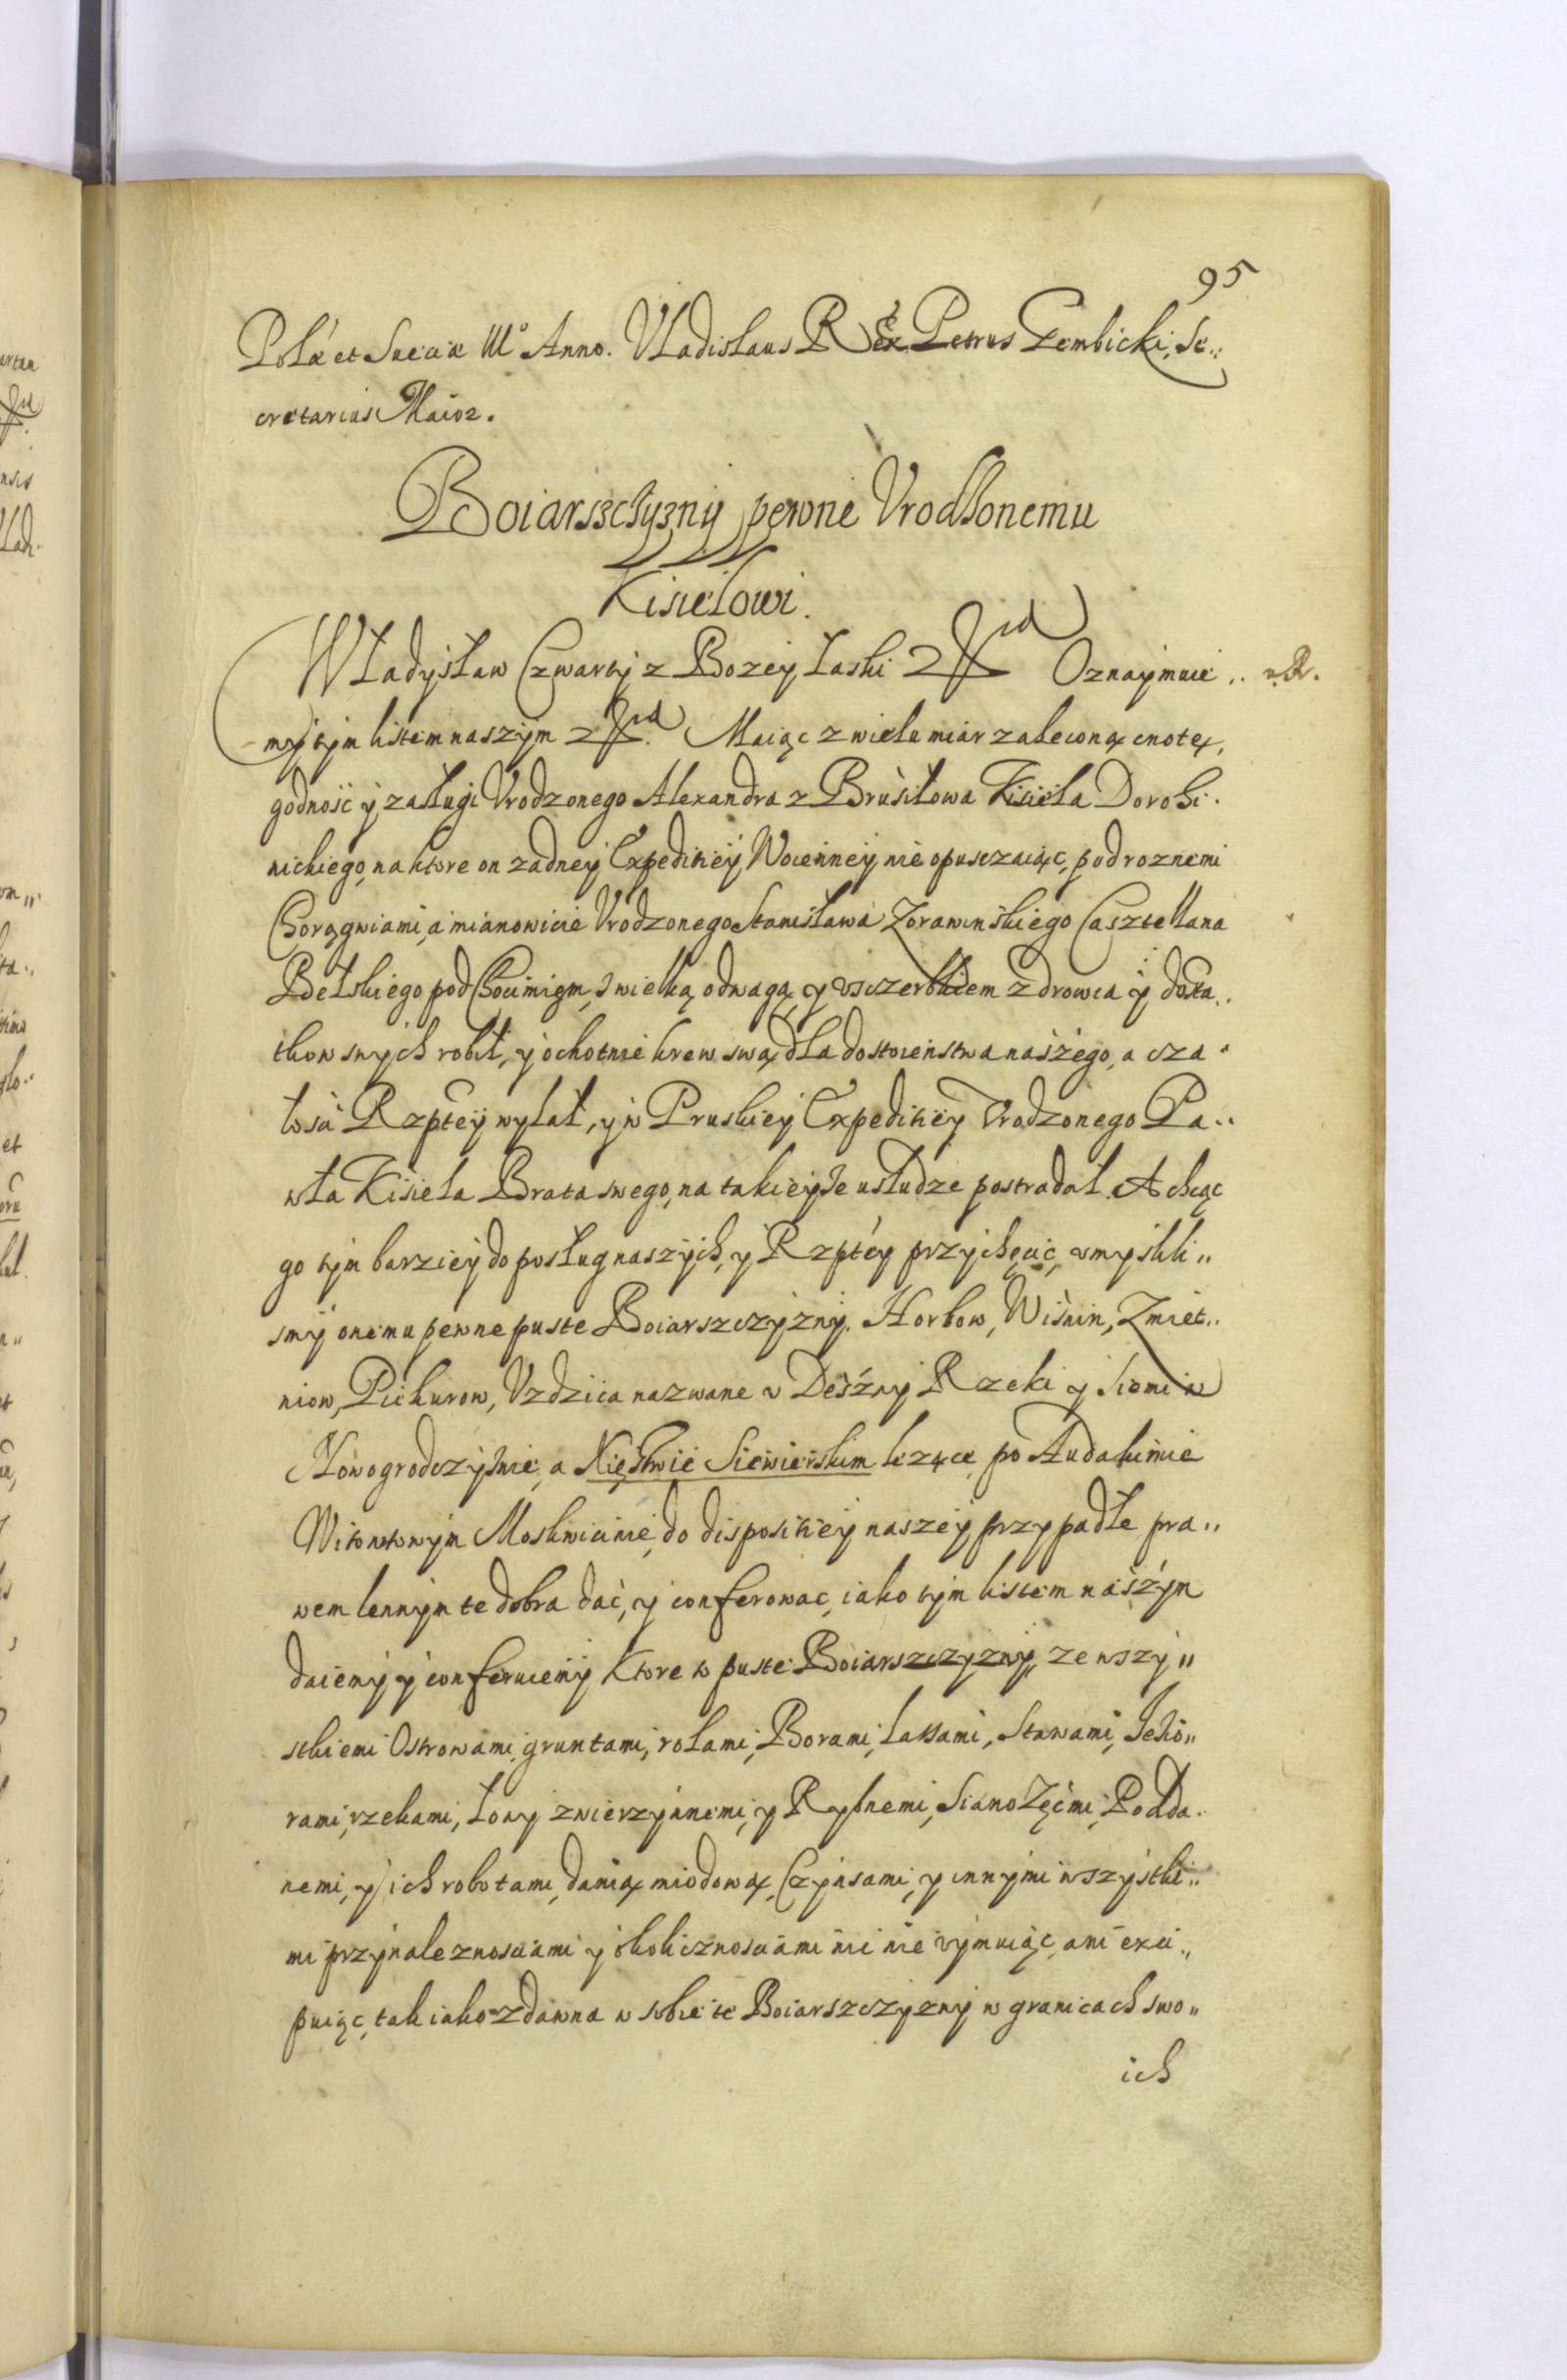 95
Polae et Sueciae IIIo Anno. Vladislaus Rex Petrus Gembicki, Se„
cretarius Maior.
Boiarszczyzny pewne Vrodzonemu
Kisielowi.
Władysław Czwarty z Bozey Łaski Oznaymuie„
my tym listem naszym Maiąc z wielu miar zaleconą cnotę,
godność y zasługi Vrodzonego Alexandra z Brusiłowa Kisiela Dorohi„
nickiego, na ktore on zadney Expeditiey Woienney nie opuszczaiąc, pod roznemi
Chorągwiami, a mianowicie Vrodzonego Stanisława Zorawinskiego Casztellana
Bełskiego pod Chocimięm, z wielką odwagą, y vsczerbkiem zdrowia y dosta„
tkow swych robił, y ochotnie krew swą dla dostoieństwa naszego, a cza„
łosci Rzptey wylał, y w Pruskiey Expeditiey Vrodzonego Pa„
wła Kisiela Brata swego, na takieyze usłudze postradał. A chcąc
go tym barziey do posług naszych, y Rzptey przychęcić, vmyslili„
smy onemu pewne puste Boiarszczyzny. Horbow, Wisnin, Zmiet„
niow, Pickurow, Vzdzica nazwane v Deszny Rzeki y Siemi w
Nowogrodczyznie, a Xięstwie Siewierskim lezące, po Audakimie
Witowtowym Moskwicinie, do dispositiey naszey przypadłe pra„
wem lennym te dobra dać, y conferowac, iako tym listem naszym
daiemy y conferuiemy Ktore to puste Boiarszczyzny, ze wszy„
stkiemi Ostrowami, gruntami, rolami, Borami, Lassami, Stawami, Jezio„
rami, rzekami, łowy zwierzynnemi, y Rybnemi, Sianozęćmi, Podda„
nemi, y ich robotami, danią miodową, Czynsami, y innymi wszystki„
mi przynaleznosciami y okolicznosciami nic nie vymuiąc, ani exci„
puiąc, tak iako z dawna w sobie te Boiarszczyzny w granicach swo„
ich